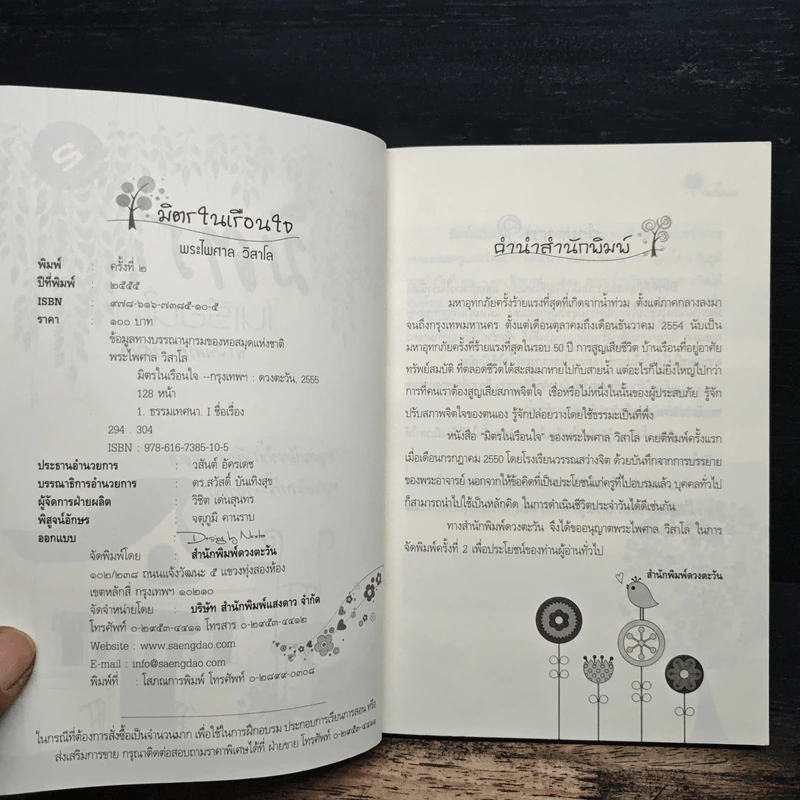 มิตรในเรือนใจ
พระไพศาล วิสาโล
พิมพ์ : ครั้งที่ ๒
ปีที่พิมพ์ : ๒๕๕๕
ISBN : ๙๗๘-๖๑๖-๗๓๘๕-๑๐-๕
ราคา : ๑๐๐ บาท
ข้อมูลทางบรรณานุกรมของหอสมุดแห่งชาติ
พระไพศาล วิสาโล
มิตรในเรือนใจ --กรุงเทพฯ : ดวงตะวัน, 2555
128 หน้า
1. ธรรมเทศนา. I ชื่อเรื่อง
294 . 304
ISBN : 978-616-7385-10-5
ประธานอำนวยการ : วสันต์ อัครเดช
บรรณาธิการอำนวยการ : ดร.สวัสดิ์ บันเทิงสุข
ผู้จัดการฝ่ายผลิต : วิชิต เด่นสุนทร
พิสูจน์อักษร : จตุภูมิ คานราบ
ออกแบบ : Design by Nhohn
จัดพิมพ์โดย : สำนักพิมพ์ดวงตะวัน
๑๐๒/๒๓๘ ถนนแจ้งวัฒนะ ๕ แขวงทุ่งสองห้อง
เขตหลักสี่ กรุงเทพฯ ๑๐๒๑๐
จัดจำหน่ายโดย : บริษัท สำนักพิมพ์แสงดาว จำกัด
โทรศัพท์ ๐-๒๙๕๓-๔๔๑๑ โทรสาร ๐-๒๙๕๓-๔๔๑๒
Website : www.saengdao.com
E-mail : info@saengdao.com
พิมพ์ที่ : โสภณการพิมพ์ โทรศัพท์ ๐-๒๘๙๙-๐๓๐๘
ในกรณีที่ต้องการสั่งซื้อเป็นจำนวนมาก เพื่อใช้ในการฝึกอบรม ประกอบการเรียนการสอน หรือ
ส่งเสริมการขาย กรุณาติดต่อสอบถามราคาพิเศษได้ที่ ฝ่ายขาย โทรศัพท์ ๐-๒๙๕๓-๔๔๑๑
คำนำสำนักพิมพ์
มหาอุทกภัยครั้งร้ายแรงที่สุดที่เกิดจากน้ำท่วม ตั้งแต่ภาคกลางลงมา
จนถึงกรุงเทพมหานคร ตั้งแต่เดือนตุลาคมถึงเดือนธันวาคม 2554 นับเป็น
มหาอุทกภัยครั้งที่ร้ายแรงที่สุดในรอบ 50 ปี การสูญเสียชีวิต บ้านเรือนที่อยู่อาศัย
ทรัพย์สมบัติ ที่ตลอดชีวิตได้สะสมมาหายไปกับสายน้ำ แต่อะไรก็ไม่ยิ่งใหญ่ไปกว่า
การที่คนเราต้องสูญเสียสภาพจิตใจ เชื่อหรือไม่หนึ่งในนั้นของผู้ประสบภัย รู้จัก
ปรับสภาพจิตใจของตนเอง รู้จักปล่อยวางโดยใช้ธรรมะเป็นที่พึ่ง
หนังสือ "มิตรในเรือนใจ" ของพระไพศาล วิสาโล เคยตีพิมพ์ครั้งแรก
เมื่อเดือนกรกฎาคม 2550 โดยโรงเรียนวรรณสว่างจิต ด้วยบันทึกจากการบรรยาย
ของพระอาจารย์ นอกจากให้ข้อคิดที่เป็นประโยชน์แก่ครูที่ไปอบรมแล้ว บุคคลทั่วไป
ก็สามารถนำไปใช้เป็นหลักคิด ในการดำเนินชีวิตประจำวันได้ดีเช่นกัน
ทางสำนักพิมพ์ดวงตะวัน จึงได้ขออนุญาตพระไพศาล วิสาโล ในการ
จัดพิมพ์ครั้งที่ 2 เพื่อประโยชน์ของท่านผู้อ่านทั่วไป
สำนักพิมพ์ดวงตะวัน